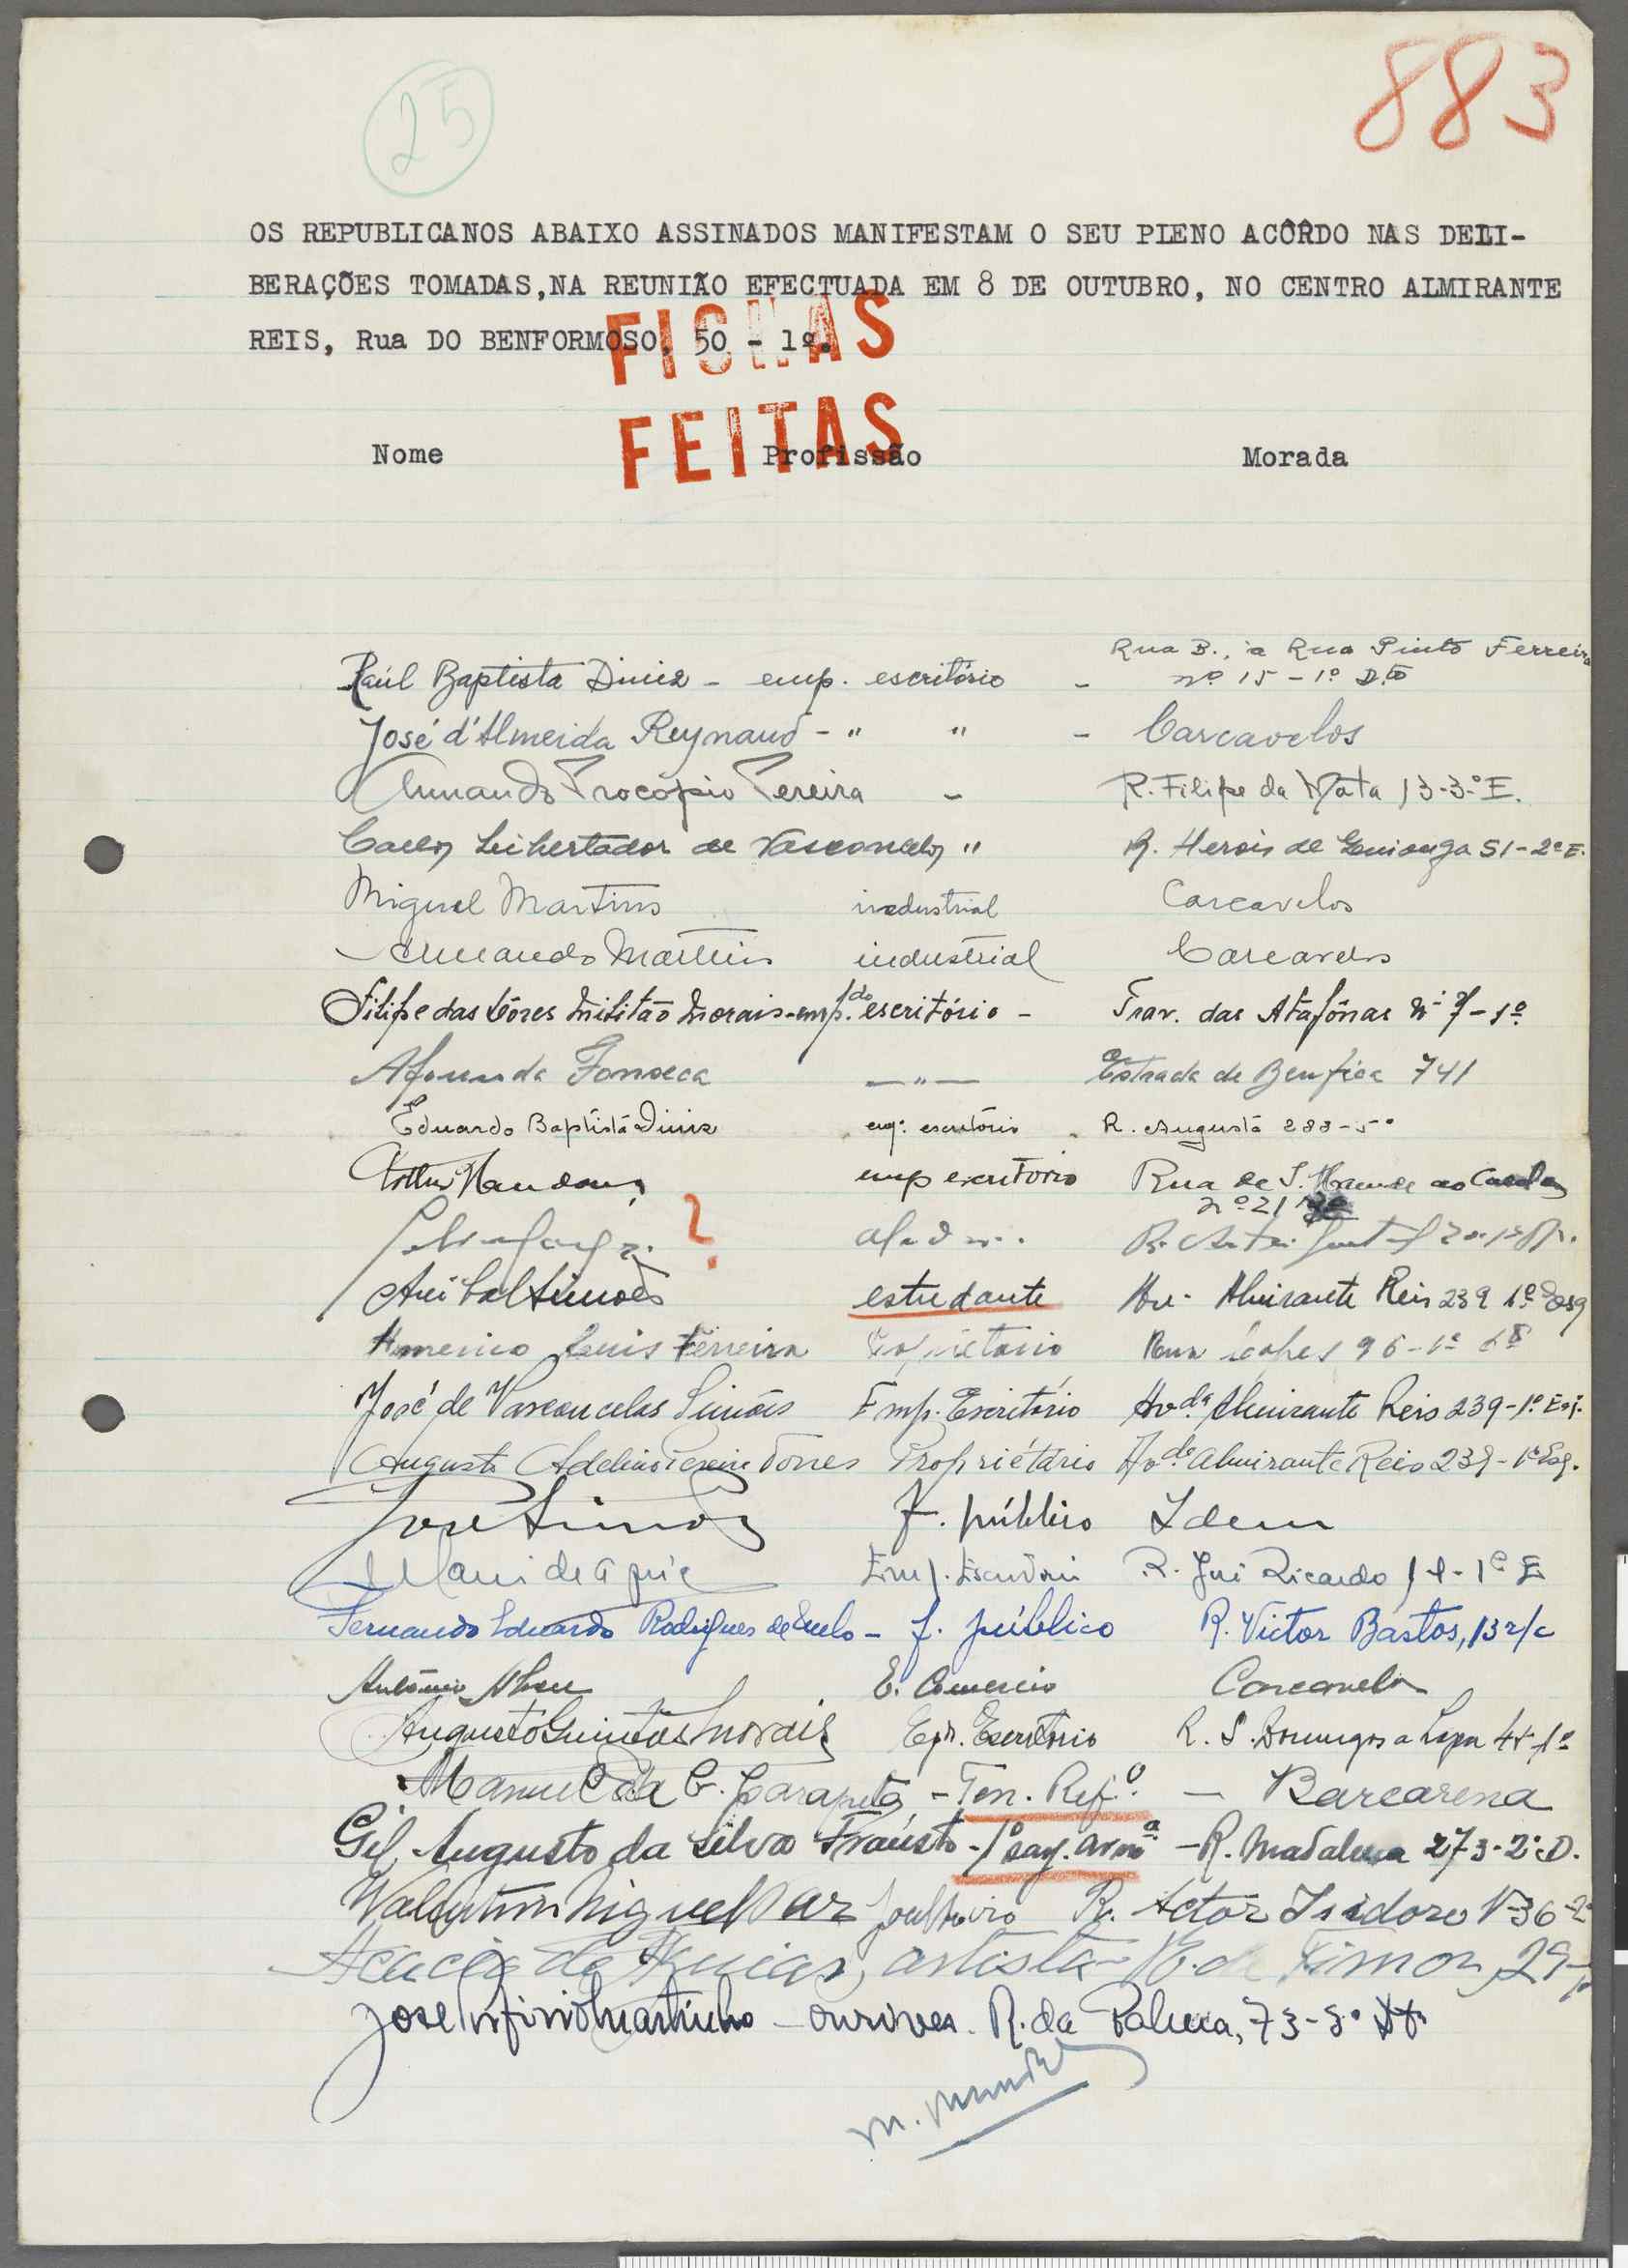 25
883
OS REPUBLICANOS ABAIXO ASSINADOS MANIFESTAM O SEU PLENO ACÔRDO NAS DELI-
BERAÇÕES TOMADAS,NA REUNIÃO EFECTUADA EM 8 DE OUTUBRO, NO CENTRO ALMIRANTE
REIS, Rua DO BENFORMOSO, 50 - 1º.
FICHAS
FEITAS
Nome Profissão Morada
Raúl Baptista Diniz - emp. escritório - Rua B., à Rua Pinto Ferreira
nº 15 - 1º D.to
José d'Almeida Reynaud - " " - Carcavelos
Armando Procópio Pereira - R. Filipe da Mata 13-3º E.
Libertador de Vasconcelos " R. Herois de 51-2º E.
Miguel Martins industrial Carcavelos
Armando Martins industrial Carcavelos
Filipe das Dôres Militão Morais - emp.do escritório - Trav. das Atafônas Nº 7-1º
Fonseca — " — Estrada de Benfica 741
Eduardo Baptista Diniz emp. escritório R. Augusta 283-5º
emp escritorio Rua de S.
nº 21
?
Anibal Simões estudante Av. Almirante Reis 239 1º Esq
Americo Luis Ferreira Proprietario 96-1º
José de Vasconcelos Simões Emp. Escritório Av.da Almirante Reis 239-1º Esq.
Augusto Adelino Pereira Torres Propriétário Av.da Almirante Reis 239-1º Esq.
José Simões F. público Idem
Emp. Escritori R. José Ricardo 1º E
Fernando Eduardo Rodrigues de Melo - f. público R. Victor Bastos, 13 r/c
António Abreu E. Comercio Carcavelos
Augusto Morais Escritório R. S. Domingos a Lapa
Manuel da C. Parapeta - Ten. Ref.º - Barcarena
Gil Augusto da Silva Fraústo - 1º sarg. arm.ª - R. Madalena 273-2º D.
Valentim Miguel R. Actor Isidoro 36-2º
artista 29
José Martinho - ourives. R. da Palma, 73-3º Dt.
M.